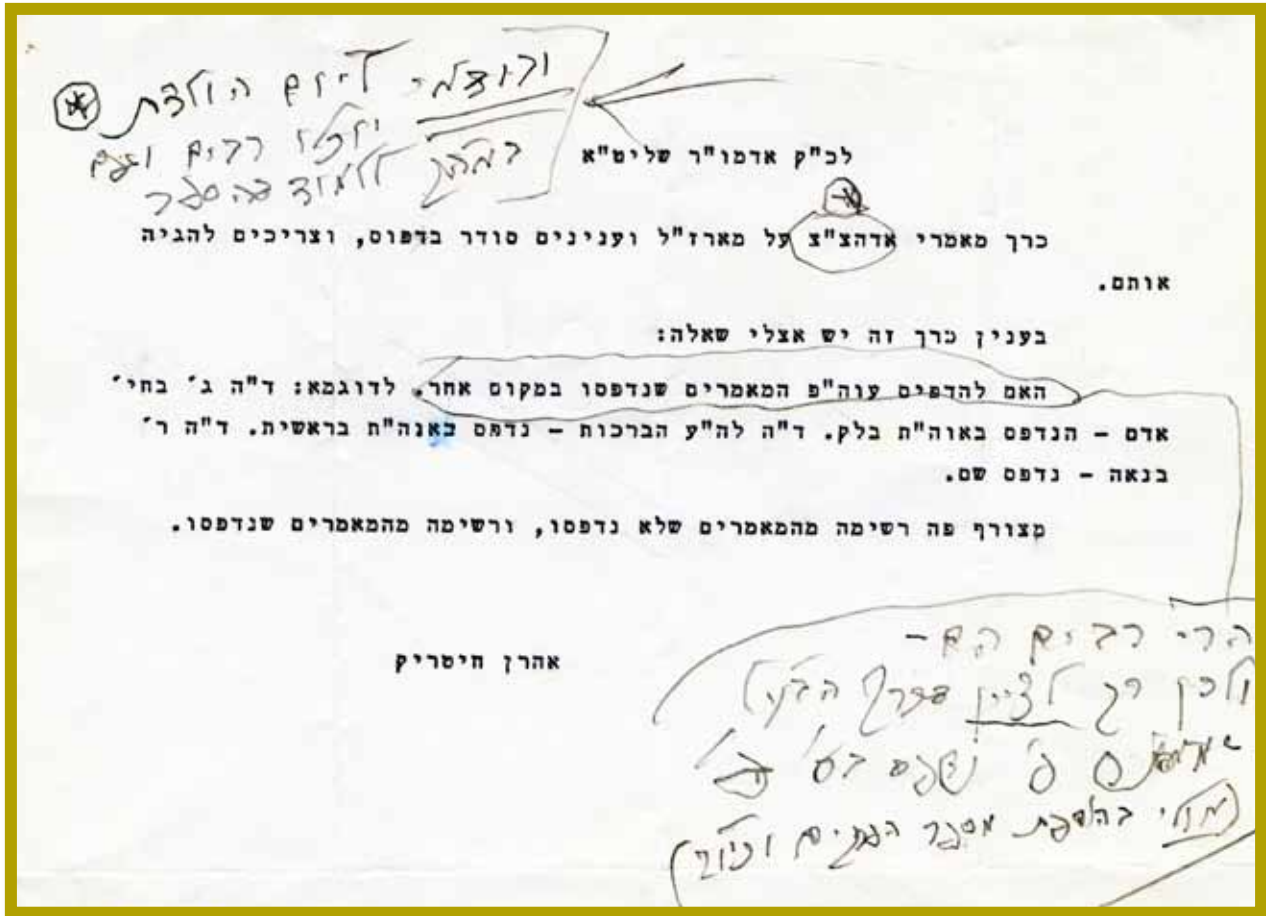 ליום הולדת
יוכלו רבים
ללמוד בהספר
לכ"ק אדמו"ר שליט"א
כרך מאמרי אדהצ"צ על מארז"ל וענינים סודר בדפוס, וצריכים להגיה
אותם.
בענין כרך זה יש אצלי שאלה:
האם להדפים עוה"פ המאמרים שנדפסו במקום אחר. לדוגמא: ד"ה ג׳ בחי׳
אדם – הנדפס באוה"ת בלק. ד"ה לה"ע הברכות – נדפס באוה"ת בראשית. ד"ה ר׳
בנאה – נדפס שם.
מצורף פה רשימה מהמאמרים שלא נדפסו, ורשימה מהמאמרים שנדפסו.
אהרן חיטריק
הרי רבים הם –
ולכן רק לציין בכרך הנ"ל
פ' נדפס בס' פ'
(אולי בהוספת מספר וכיו"ב)